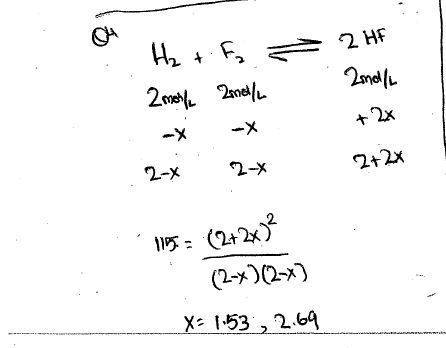 Q4
H₂ + F₂ ⇌ 2 HF
2mol/L 2mol/L 2mol/L
-x -x +2x
2-x 2-x 2+2x
115 = (2+2x)²
(2-x)(2-x)
x= 1.53 , 2.69